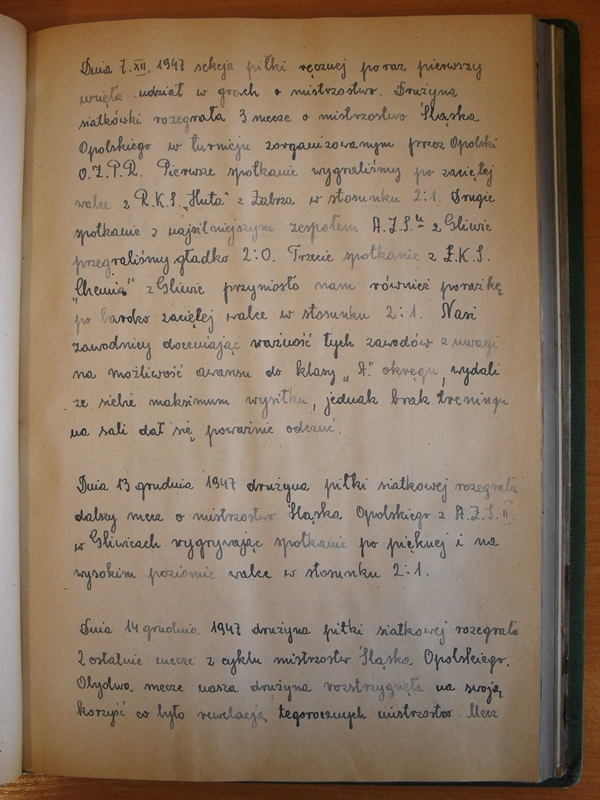 Dnia 7.XII.1947 sekcja piłki ręcznej po raz pierwszy
wzięła udział w grach o mistrzostwo. Drużyna
siatkówki rozegrała 3 mecze o mistrzostwo Śląska
Opolskiego w turnieju zorganizowanym przez Opolski
O.Z.P.R. Pierwsze spotkanie wygraliśmy po zaciętej
walce z R.K.S. „Huta" z Zabrza w stosunku 2:1. Drugie
spotkanie z najsilniejszym zespołem A.Z.S." z Gliwic
przegraliśmy gładko 2:0. Trzecie spotkanie z Z.K.S.
„Chemia" z Gliwic przyniosło nam również porażkę
po bardzo zaciętej walce w stosunku 2:1. Nasi
zawodnicy doceniając ważność tych zawodów z uwagi
na możliwość awansu do klasy „A" okręgu, wydali
ze siebie maksimum wysiłku, jednak brak treningu
na sali dał się poważnie odczuć.
Dnia 13 grudnia 1947 drużyna piłki siatkowej rozegrała
dalszy mecz o mistrzostwo Śląska Opolskiego z A.Z.S. II
w Gliwicach wygrywając spotkanie po pięknej i na
wysokim poziomie walce w stosunku 2:1.
Dnia 14 grudnia 1947 drużyna piłki siatkowej rozegrała
2 ostatnie mecze z cyklu mistrzostw Śląska Opolskiego.
Obydwa mecze nasza drużyna rozstrzygnęła na swoją
korzyść co było rewelacją tegorocznych mistrzostw. Mecz